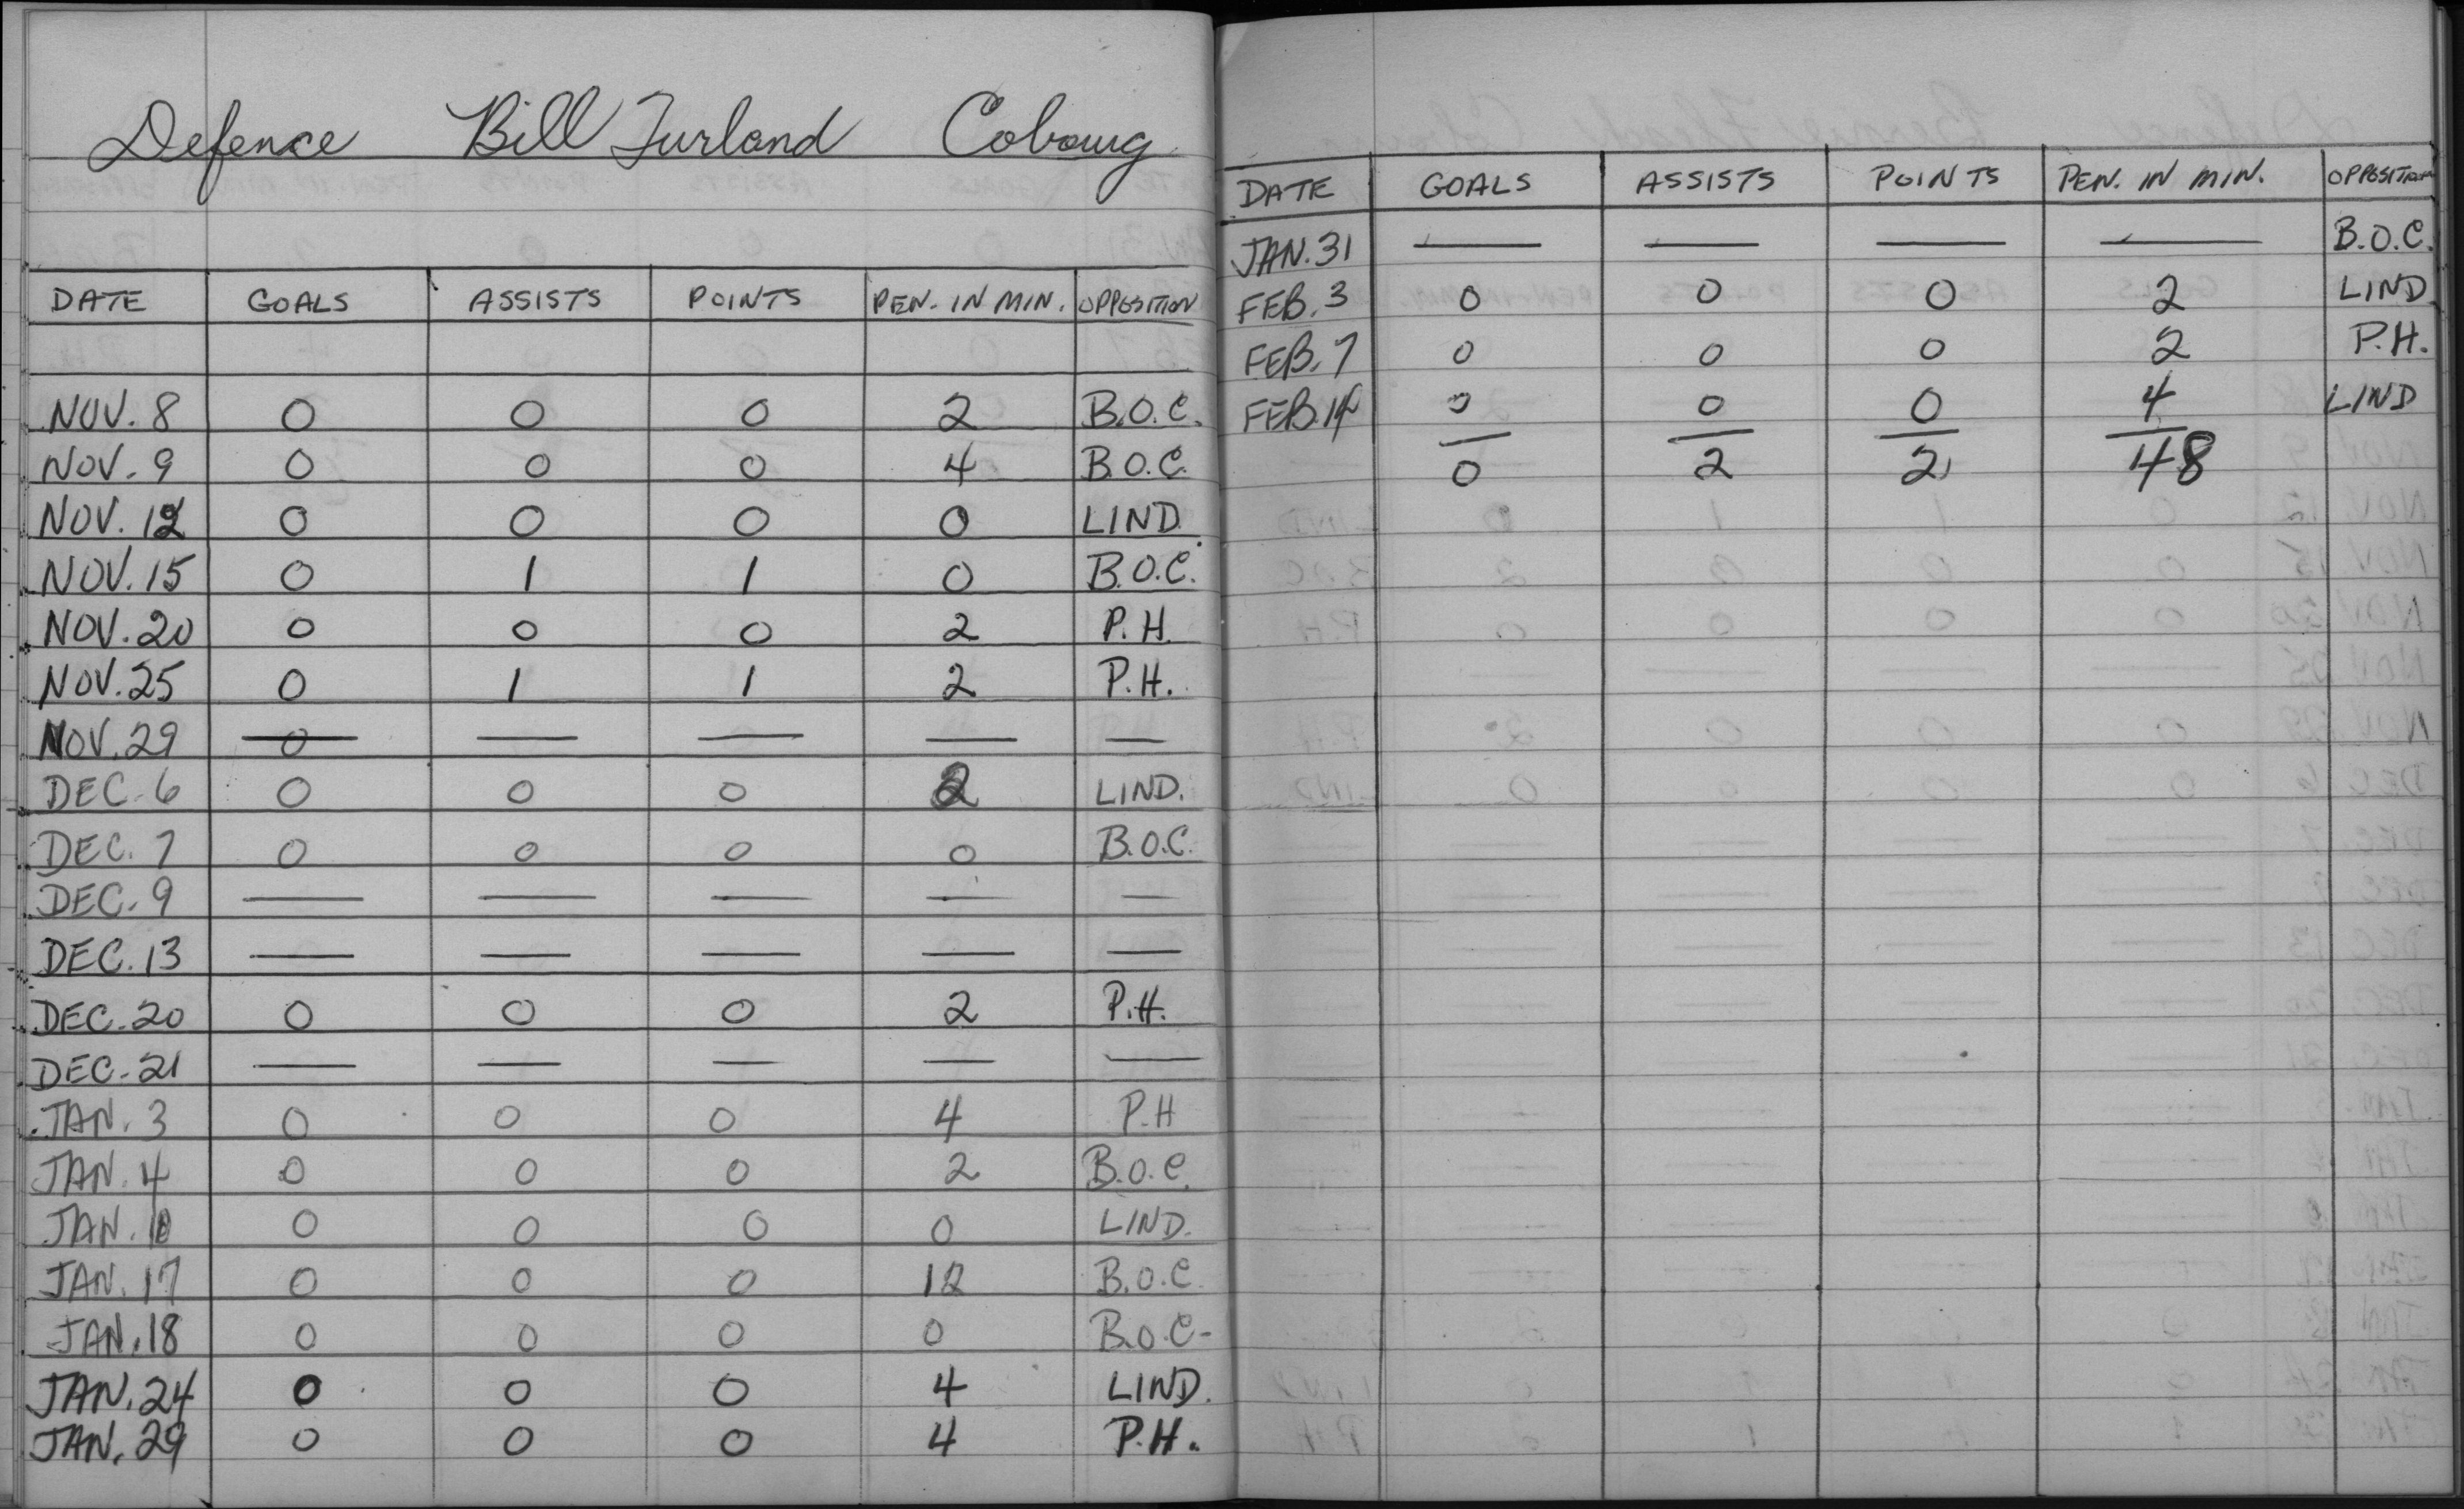 Defence Bill Turland Cobourg
DATE GOALS ASSISTS POINTS PEN. IN MIN. OPPOSITION
NOV. 8 0 0 0 2 B.O.C.
NOV. 9 0 0 0 4 B.O.C.
NOV. 12 0 0 0 0 LIND.
NOV. 15 0 1 1 0 B.O.C.
NOV. 20 0 0 0 2 P.H.
NOV. 25 0 1 1 2 P.H.
NOV. 29 — — — — —
DEC. 6 0 0 0 2 LIND.
DEC. 7 0 0 0 0 B.O.C.
DEC. 9 — — — — —
DEC. 13 — — — — —
DEC. 20 0 0 0 2 P.H.
DEC. 21 — — — — —
JAN. 3 0 0 0 4 P.H
JAN. 4 0 0 0 2 B.O.C.
JAN. 10 0 0 0 0 LIND.
JAN. 17 0 0 0 12 B.O.C.
JAN. 18 0 0 0 0 B.O.C-
JAN. 24 0 0 0 4 LIND.
JAN. 29 0 0 0 4 P.H.
DATE GOALS ASSISTS POINTS PEN. IN MIN. OPPOSITION
JAN. 31 — — — — B.O.C.
FEB. 3 0 0 0 2 LIND
FEB. 7 0 0 0 2 P.H.
FEB. 14 0 0 0 4 LIND
0 2 2 48